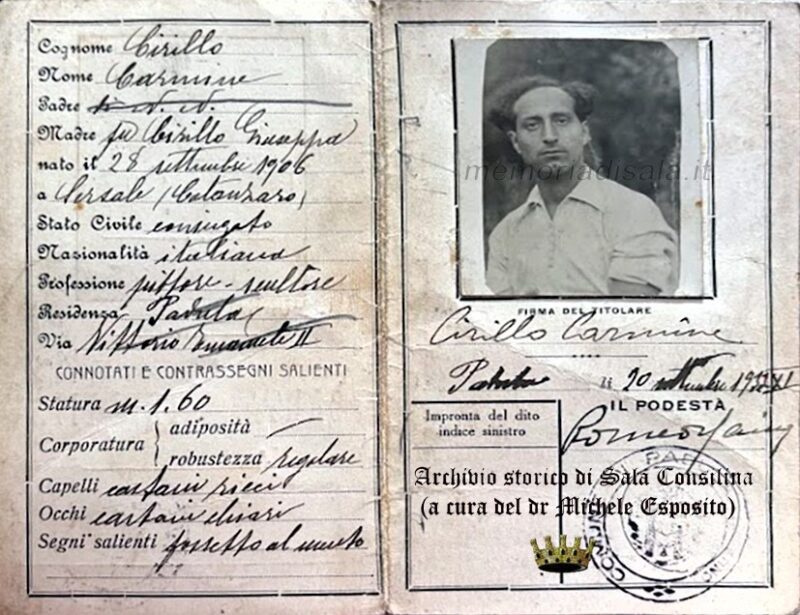 Cognome Cirillo
Nome Carmine
Padre di N. N.
Madre fu Cirillo Giuseppa
nato il 28 settembre 1906
a Sersale (Catanzaro)
Stato Civile coniugato
Nazionalità italiana
Professione pittore-scultore
Residenza Padula
Via Vittorio Emanuele II
CONNOTATI E CONTRASSEGNI SALIENTI
Statura m. 1.60
Corporatura { adiposità
robustezza regolare
Capelli castani ricci
Occhi castani chiari
Segni salienti fossetta al mento
memoriadisala.it
FIRMA DEL TITOLARE
Cirillo Carmine
Padula li 20 settembre
IL PODESTÀ
Impronta del dito
indice sinistro
Archivio storico di Sala Consilina
(a cura del dr Michele Esposito)
COMUNE DI